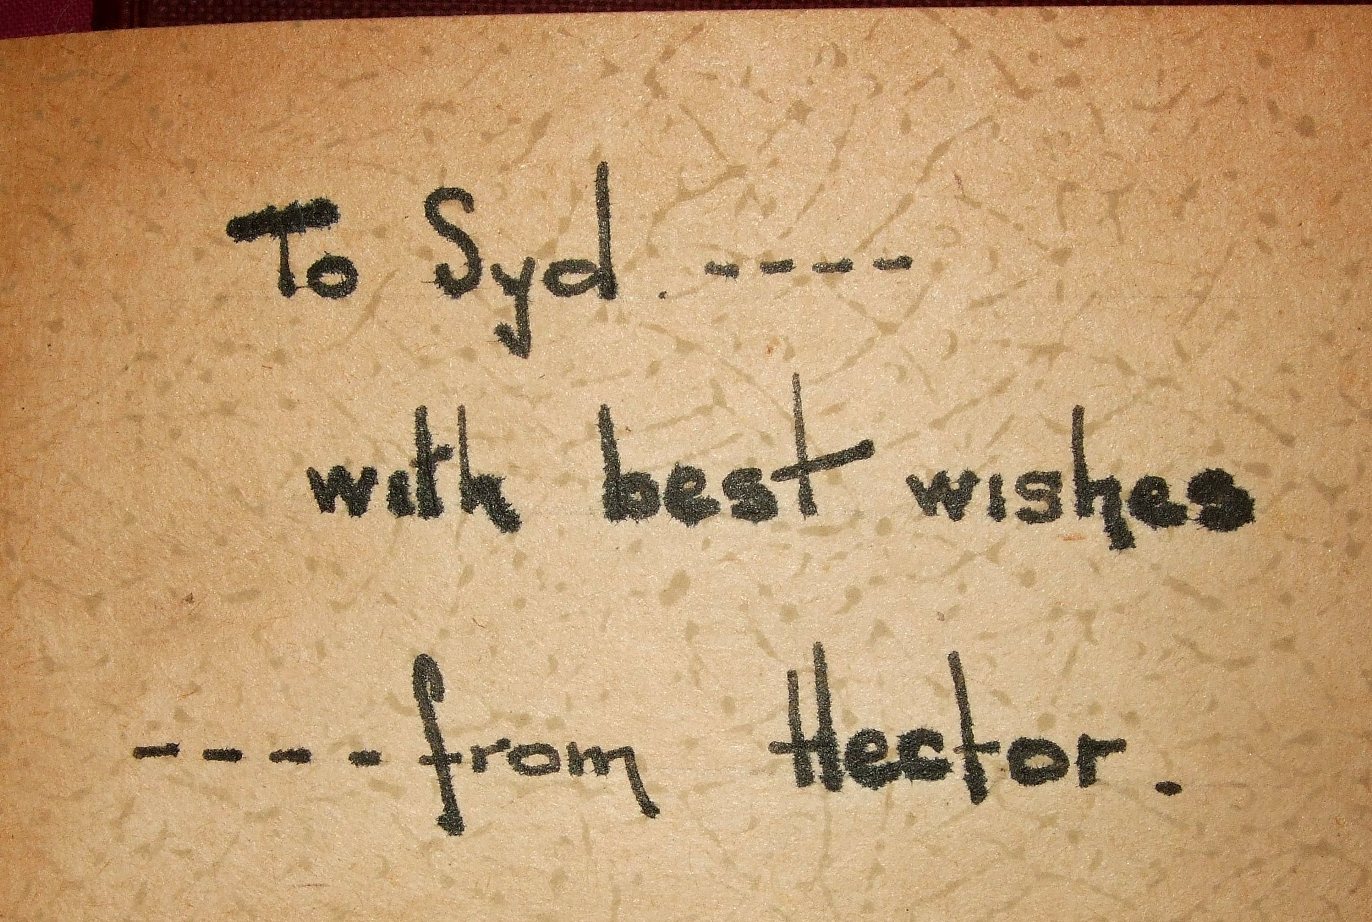 To Syd. ----
with best wishes
---- from Hector.